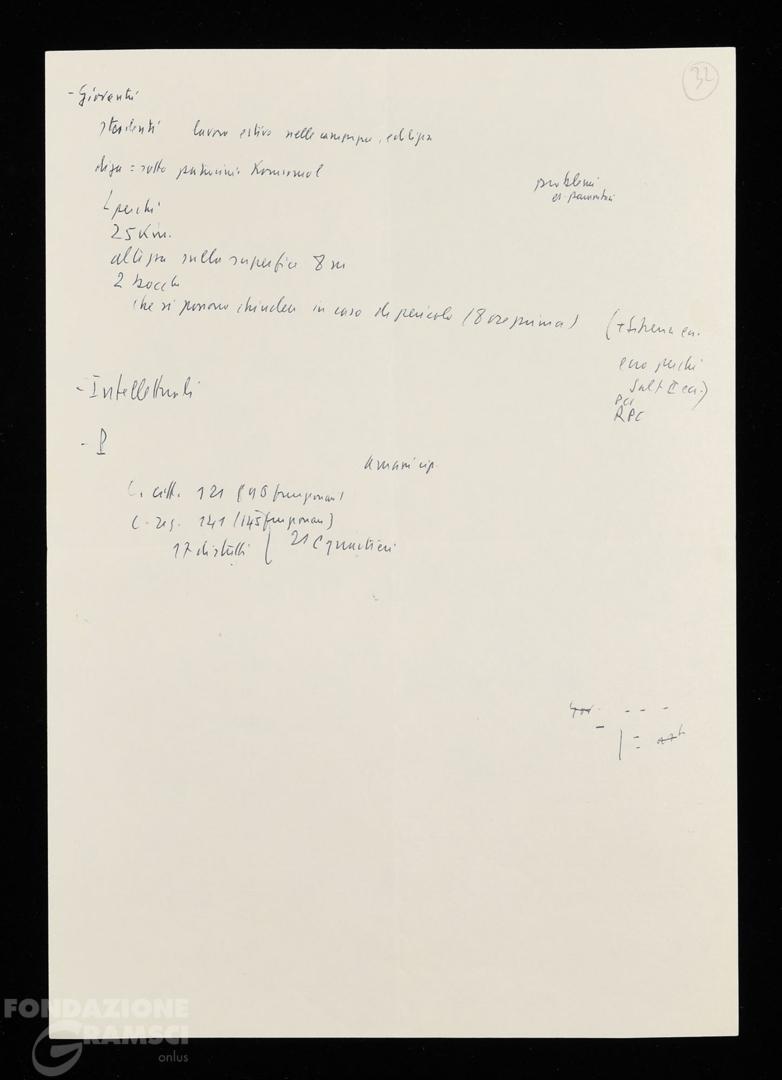 32
- Gioventù
studenti lavoro estivo nelle campagne, edilizia
diga = sotto patrocinio Komsomol
problemi
perché
25 Km.
alt. sulla superficie 8 m
2 bocche
che si possono chiudere in caso di pericolo (8 ore prima)
perché
Salt II
PCI
RPC
- Intellettuali
- P
C. citt. 121
C. reg. 141 (145 funzionari)
17 distretti 21 C quartieri
FONDAZIONE
GRAMSCI
onlus